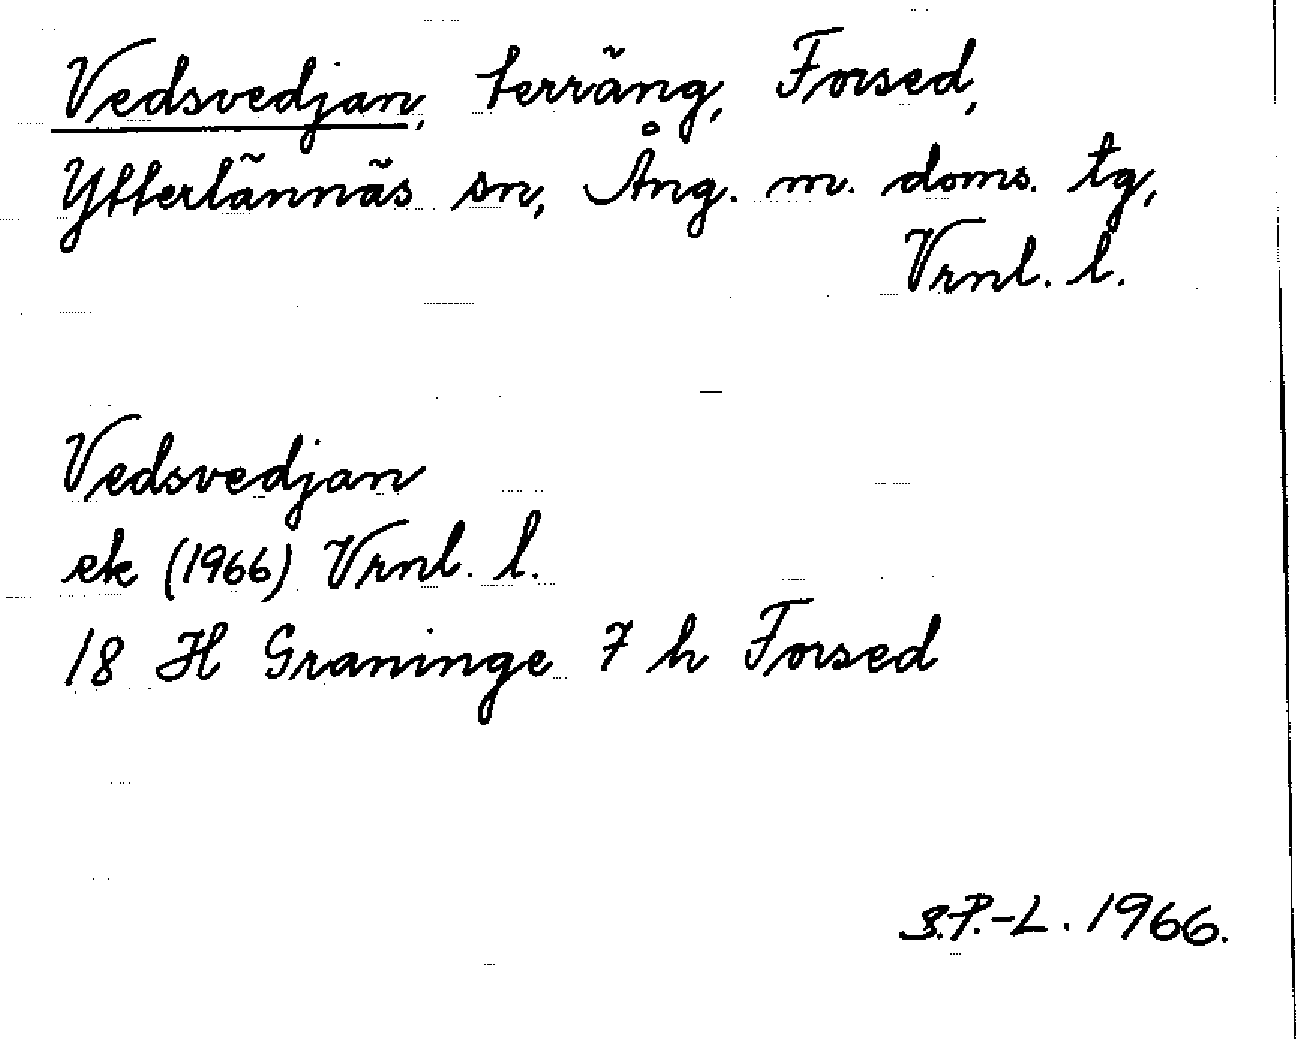 Vedsvedjan, terräng, Forsed,
Ytterlännäs sn, Ång. m. doms. tg,
Vrnl. l.
Vedsvedjan
ek (1966) Vrnl. l.
18 H Graninge 7 h Forsed
B.P.-L. 1966.